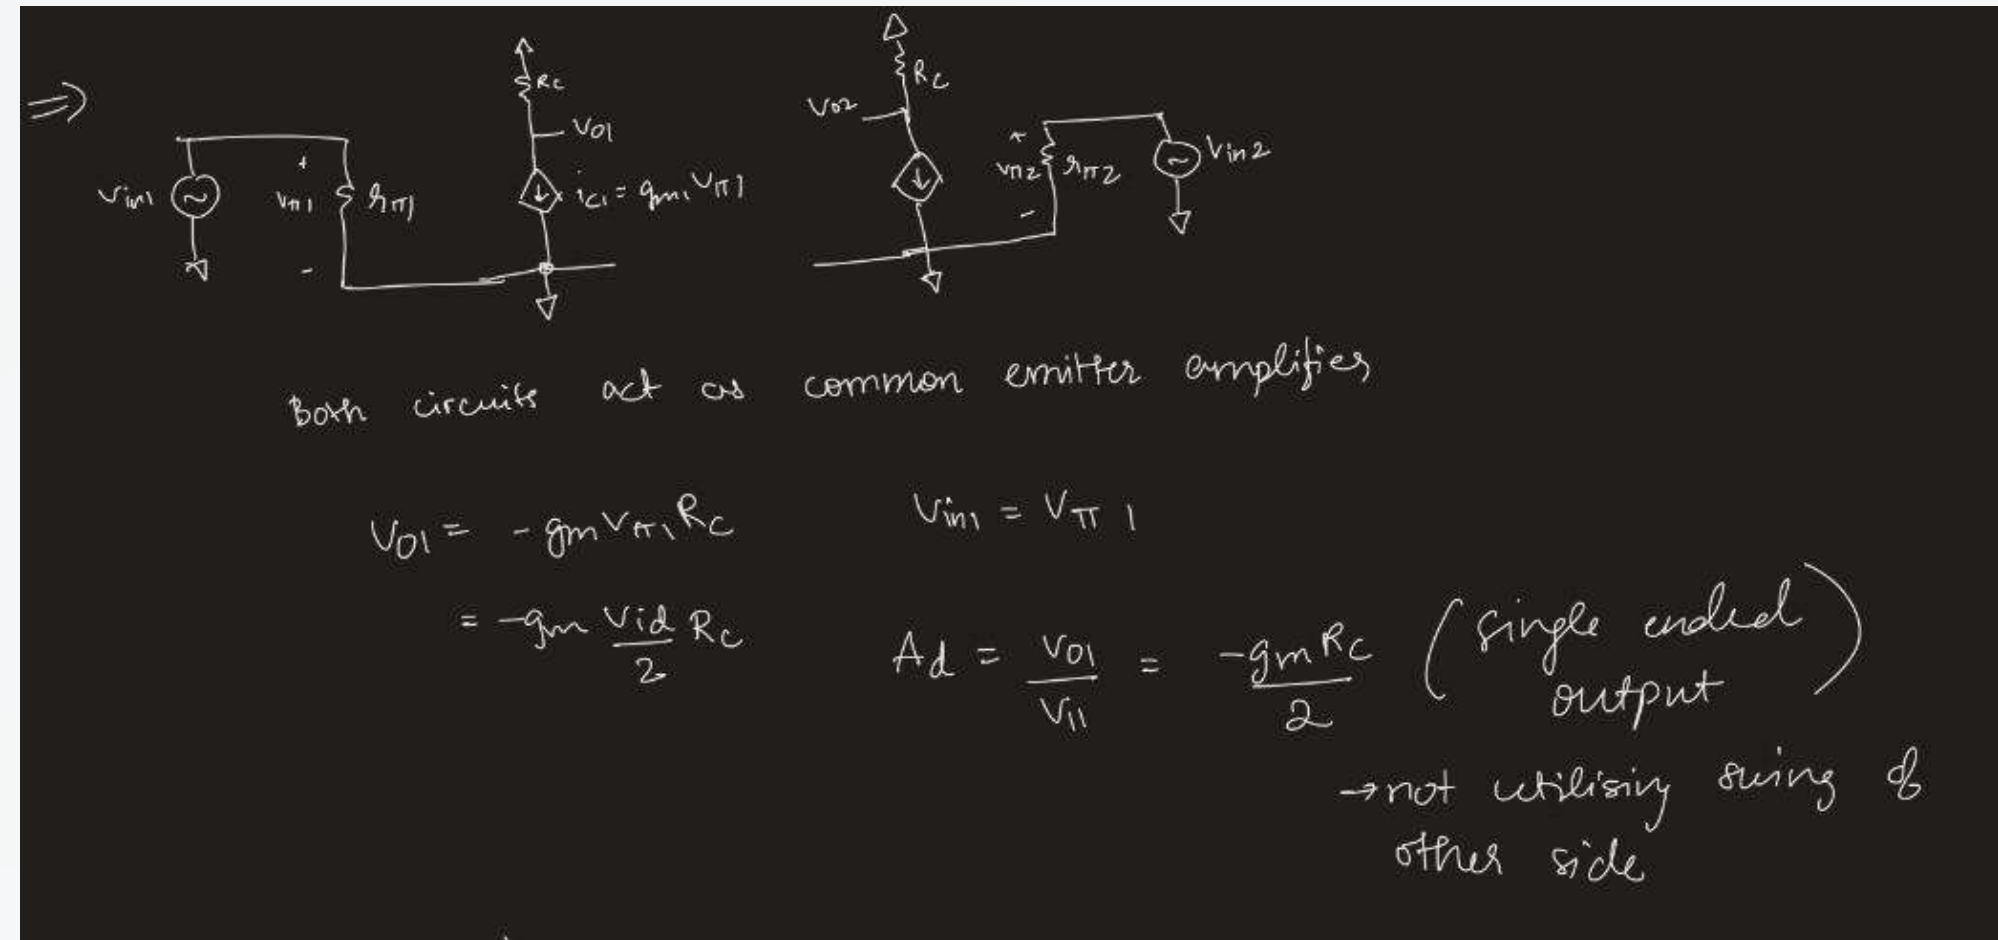 ⇒
Rc
Vo1
Vin1
+
vπ1
rπ1
-
ic1 = gm1 Vπ1
Rc
Vo2
+
vπ2
rπ2
-
Vin2
Both circuits act as common emitter amplifier
Vo1 = -gm Vπ1 Rc
Vin1 = Vπ1
= -gm Vid/2 Rc
Ad = Vo1/V11 = -gm Rc/2 (single ended output)
→ not utilising swing of
other side